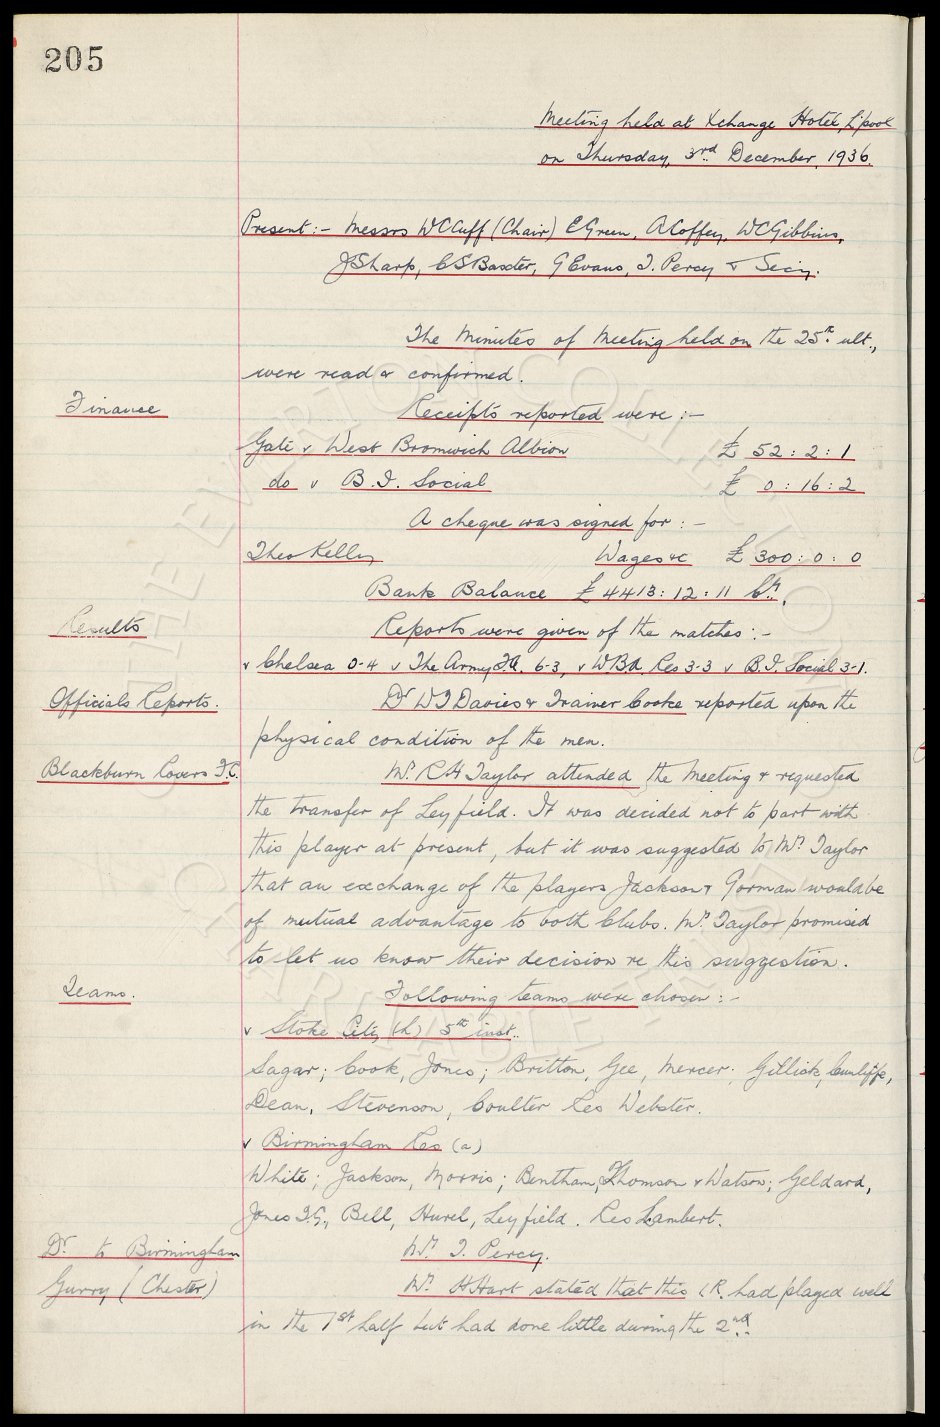 205
Meeting held at Xchange Hotel, L'pool
on Thursday, 3rd December, 1936.
Present:- Messrs WCCuff (Chair) EGreen, ACoffey, WCGibbins,
JSharp, CSBaxter, GEvans, T. Percy & Secy.
The Minutes of Meeting held on the 25th ult.,
were read & confirmed.
Finance
Receipts reported were :-
Gate v West Bromwich Albion £ 52 : 2 : 1
do v B.I. Social £ 0 : 16 : 2
A cheque was signed for : -
Theo Kelly Wages &c £ 300 : 0 : 0
Bank Balance £4413 : 12 : 11 Cr.
Results
Reports were given of the matches :-
v Chelsea 0-4 v The Army 6-3, v W.B.A. Res 3-3 v B.I. Social 3-1.
Officials Reports.
Dr WJDavies & Trainer Cooke reported upon the
physical condition of the men.
Blackburn Rovers F.C.
Mr. RHTaylor attended the Meeting & requested
the transfer of Leyfield. It was decided not to part with
this player at present, but it was suggested to Mr. Taylor
that an exchange of the players Jackson & Gorman would be
of mutual advantage to both Clubs. Mr. Taylor promised
to let us know their decision re this suggestion.
Teams.
Following teams were chosen : -
v Stoke City (h) 5th inst.
Sagar; Cook, Jones; Britton, Gee, Mercer; Gillick, Cunliffe,
Dean, Stevenson, Coulter Res Webster.
v Birmingham Res (a)
White; Jackson, Morris; Bentham, Thomson & Watson; Geldard,
Jones T.G., Bell, Hurel, Leyfield. Res Lambert.
Dr. to Birmingham
Mr. T. Percy.
Gurry (Chester)
Mr. HHart stated that this I.R. had played well
in the 1st half but had done little during the 2nd.
THE EVERTON COLLECTION
CHARITABLE TRUST